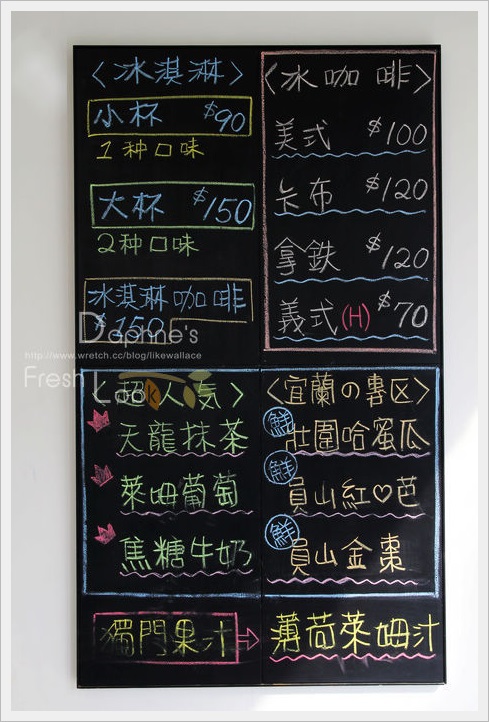 〈冰淇淋〉
小杯 $90
1种口味
大杯 $150
2种口味
冰淇淋咖啡
$150
〈冰咖啡〉
美式 $100
卡布 $120
拿鉄 $120
義式(H) $70
Daphne's
http://www.wretch.cc/blog/likewallace
Fresh Look
〈超人気〉
天龍抹茶
萊姆葡萄
焦糖牛奶
〈宜蘭の專区〉
鮮 壯圍哈蜜瓜
鮮 員山紅♡芭
鮮 員山金棗
獨門果汁 ⇨ 薄荷萊姆汁